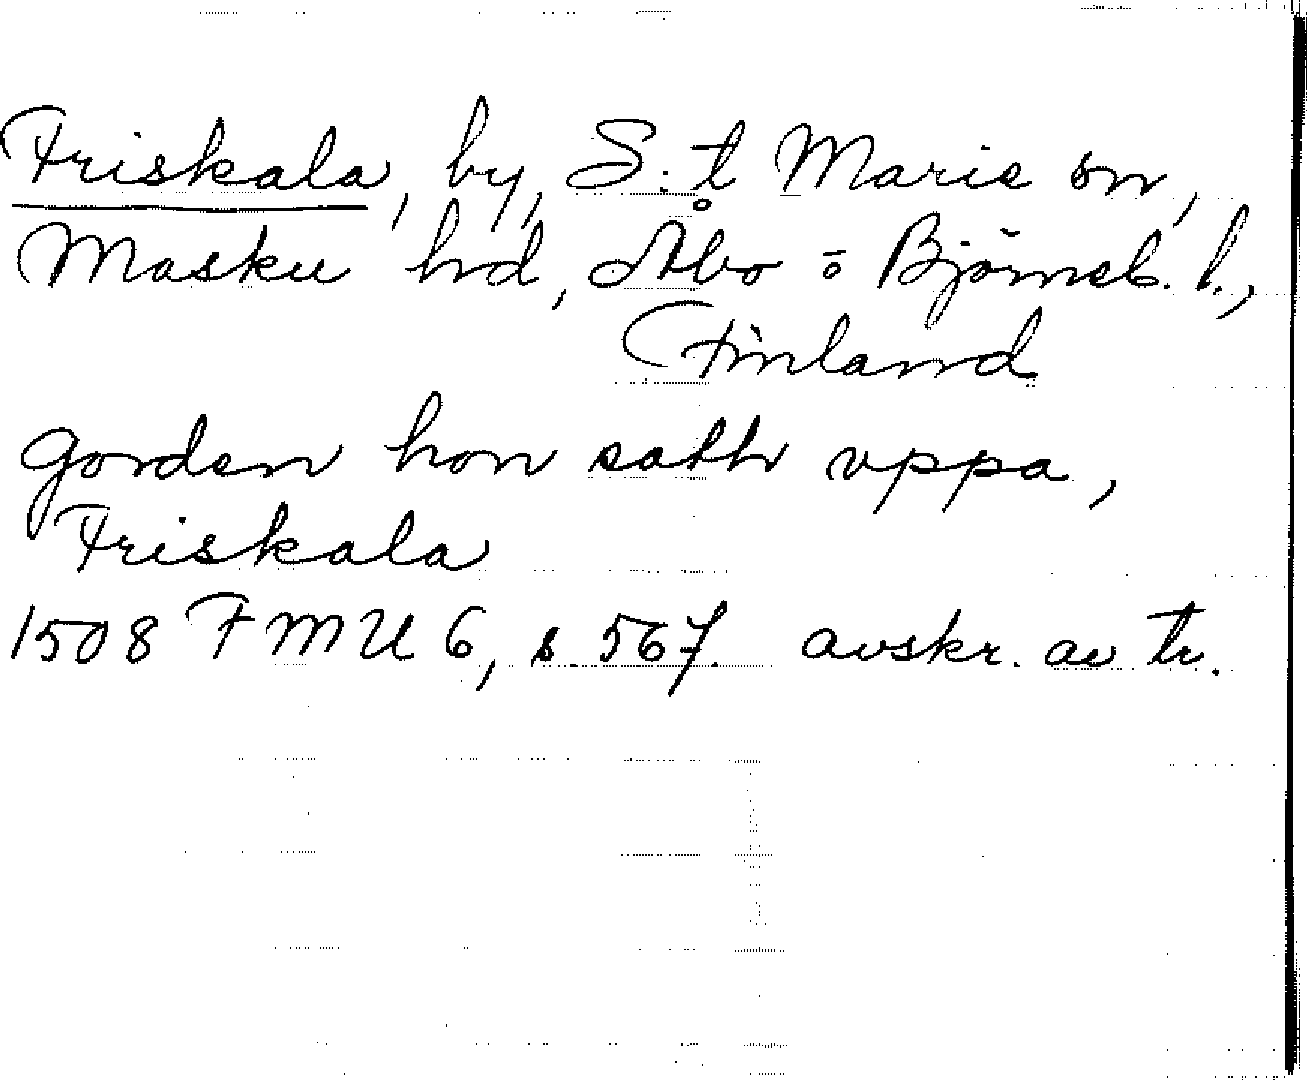 Friskala, by, S:t Marie sn,
Masku hd, Åbo o Björneb. l.,
Finland
gorden hon satth vppa,
Friskala
1508 FMU 6, s. 567. avskr. av tr.